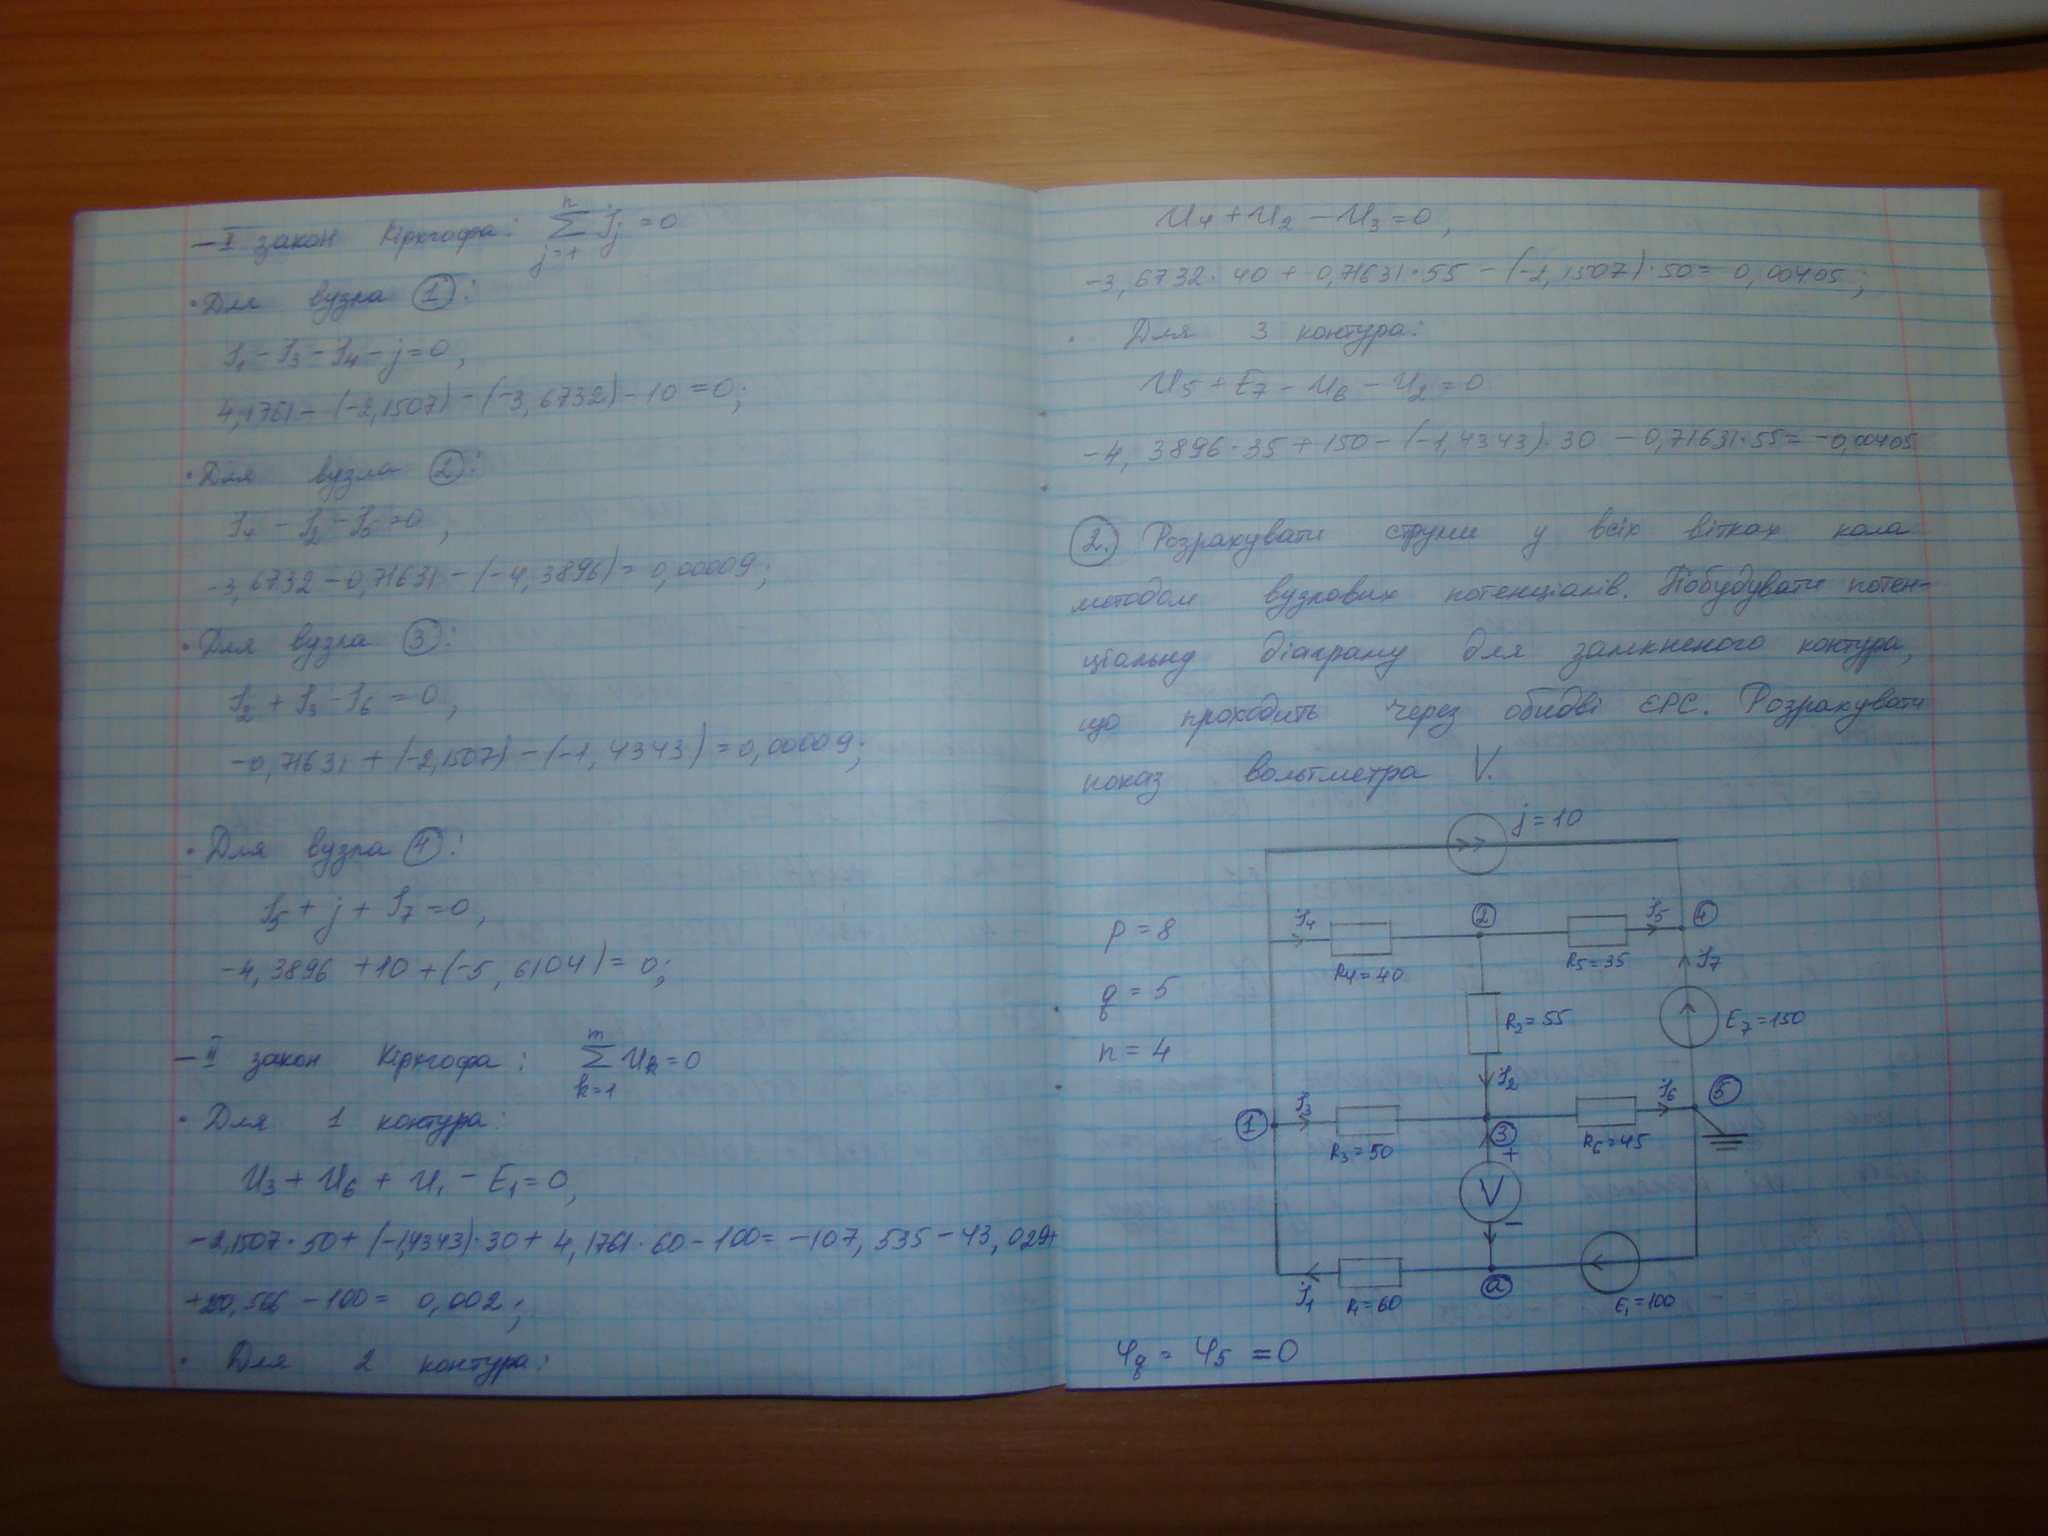 — I закон Кірхгофа: n ∑ j=1 I_j = 0
• Для вузла ①:
I₁ - I₃ - I₄ - j = 0,
4,1761 - (-2,1507) - (-3,6732) - 10 = 0;
• Для вузла ②:
I₄ - I₂ - I₅ = 0,
-3,6732 - 0,71631 - (-4,3896) = 0,00009;
• Для вузла ③:
I₂ + I₃ - I₆ = 0,
-0,71631 + (-2,1507) - (-1,4343) = 0,00009;
• Для вузла ④:
I₅ + j + I₇ = 0,
-4,3896 + 10 + (-5,6104) = 0;
— II закон Кірхгофа: m ∑ k=1 U_k = 0
• Для 1 контура:
U₃ + U₆ + U₁ - E₁ = 0,
-2,1507·50 + (-1,4343)·30 + 4,1761·60 - 100 = -107,535 - 43,029+
+250,566 - 100 = 0,002;
• Для 2 контура:
U₄ + U₂ - U₃ = 0,
-3,6732·40 + 0,71631·55 - (-2,1507)·50 = 0,00405;
• Для 3 контура:
U₅ + E₇ - U₆ - U₂ = 0
-4,3896·35 + 150 - (-1,4343)·30 - 0,71631·55 = -0,00405
②. Розрахувати струми у всіх вітках кола
методом вузлових потенціалів. Побудувати потен-
ціальну діаграму для замкненого контура,
що проходить через обидві ЕРС. Розрахувати
показ вольтметра V.
j = 10
I₄ ② I₅ ④
p = 8
R₄=40 R₅=35 I₇
q = 5
R₂=55 E₇=150
n = 4
I₂
① I₃ I₆ ⑤
R₃=50 ③ R₆=45
+
V
−
I₁ R₁=60 ⓐ E₁=100
φ_q = φ₅ = 0